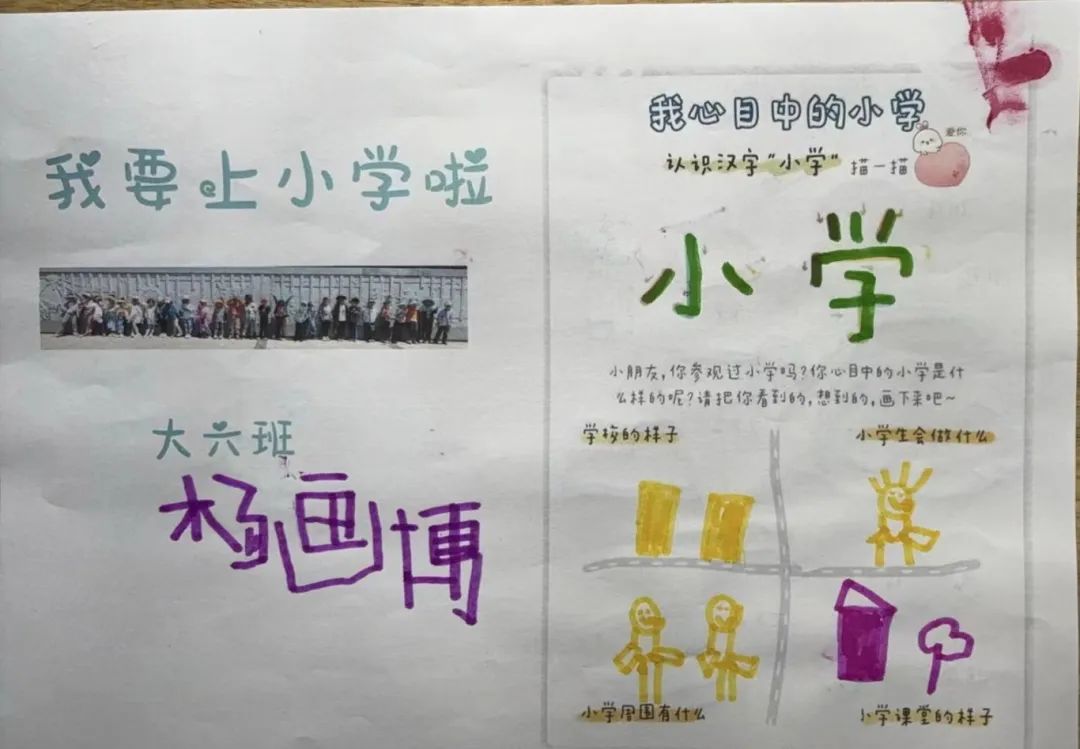 我要上小学啦
大六班
杨画博
我心目中的小学
爱你
认识汉字"小学" 描一描
小学
小朋友,你参观过小学吗?你心目中的小学是什
么样的呢?请把你看到的,想到的,画下来吧~
学校的样子
小学生会做什么
小学周围有什么
小学课堂的样子